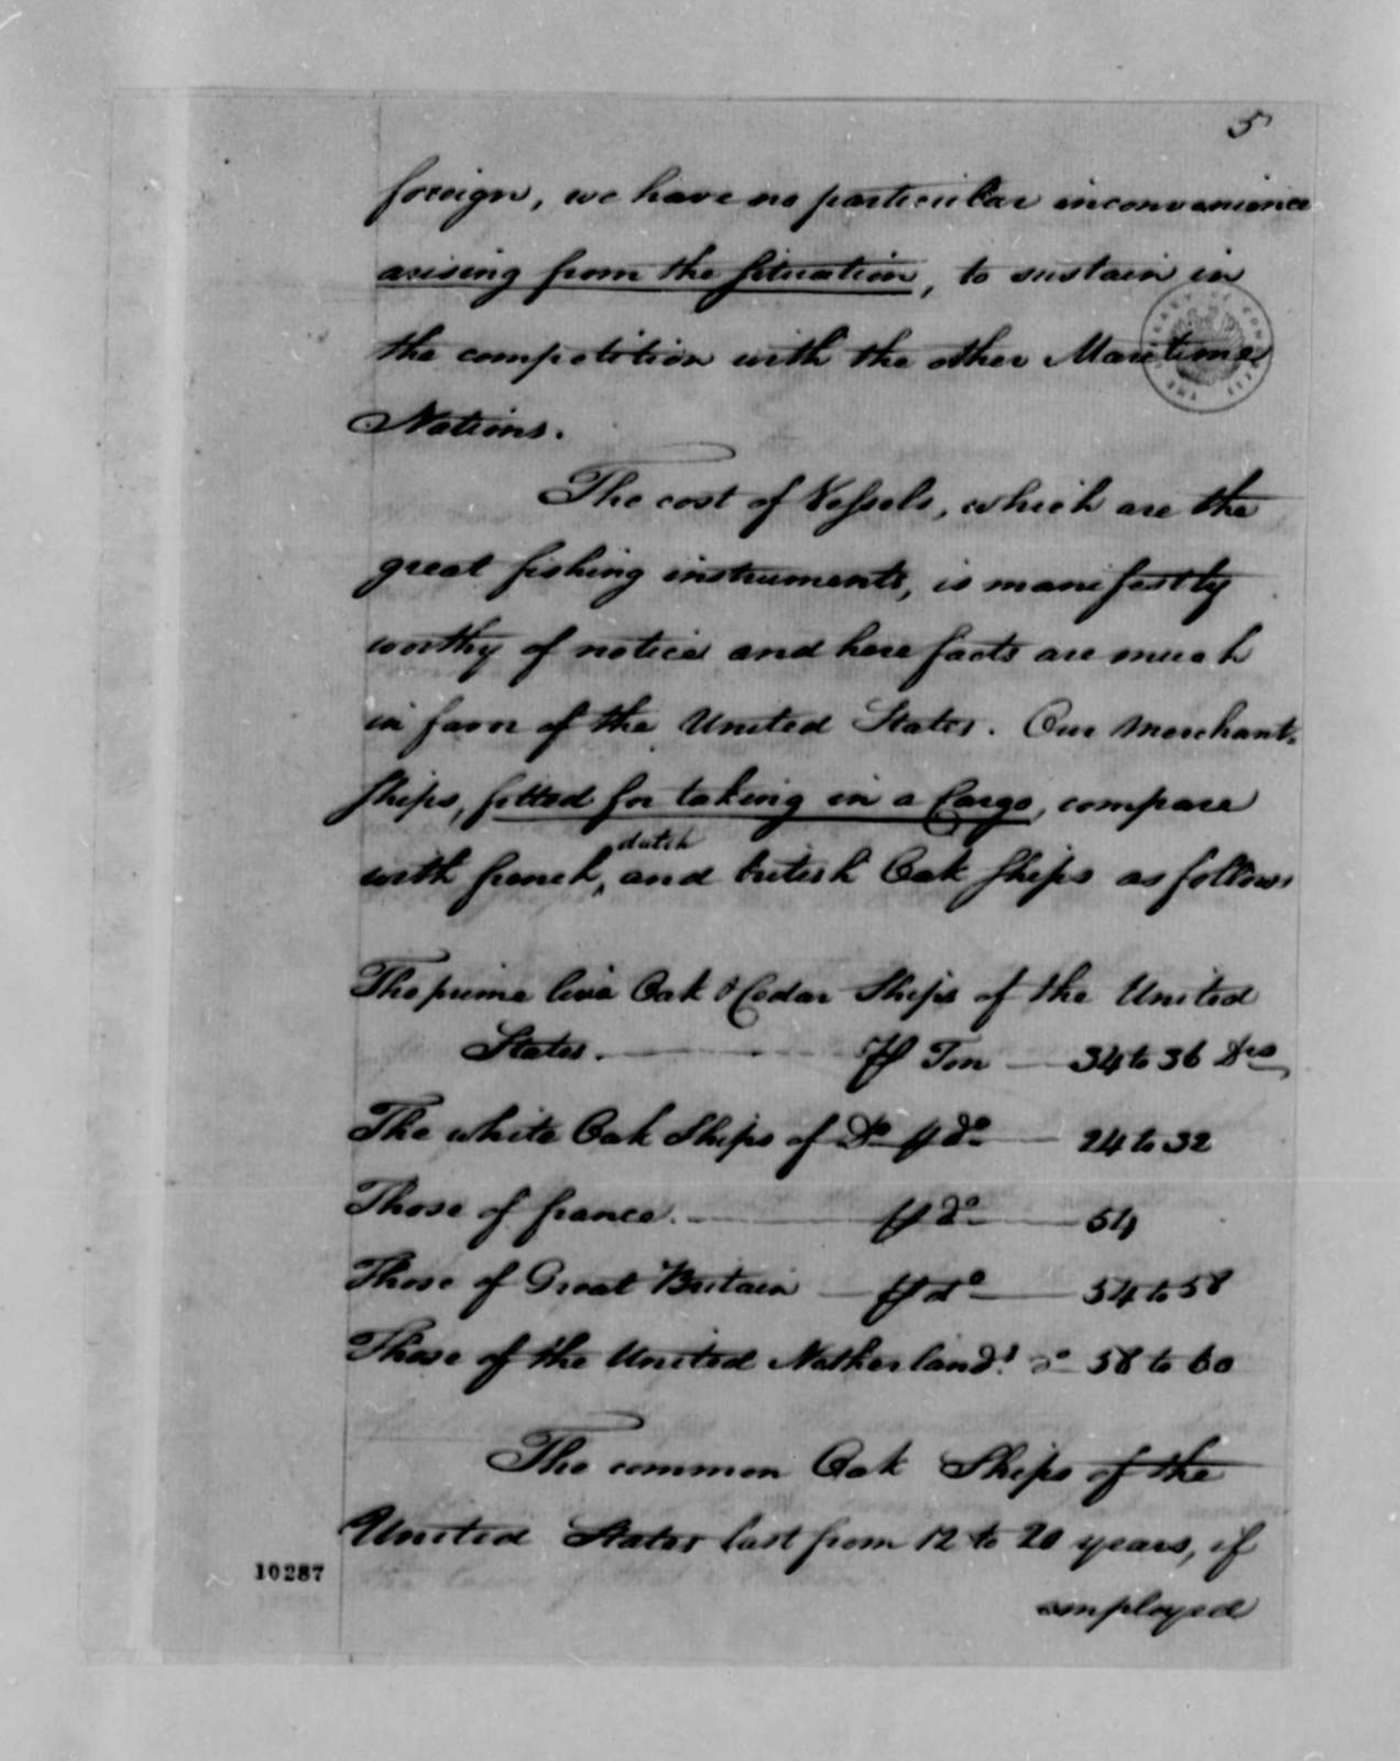 5
foreign, we have no particular inconvenience
arising from the situation, to sustain in
the competition with the other Maritime
Nations.
The cost of Vessels, which are the
great fishing instruments, is manifestly
worthy of notice and here facts are much
in favor of the United States. Our merchant-
ships, fitted for taking in a Cargo, compare
dutch
with french, and british Oak ships as follows
The prime live Oak & Cedar Ships of the United
States. ⅌ Ton 34 to 36 Drs
The white Oak Ships of Do ⅌ do 24 to 32
Those of france. ⅌ do 54
Those of Great Britain ⅌ do 54 to 58
Those of the United Netherlands do 58 to 60
The common Oak Ships of the
United States last from 12 to 20 years, if
employed
10287